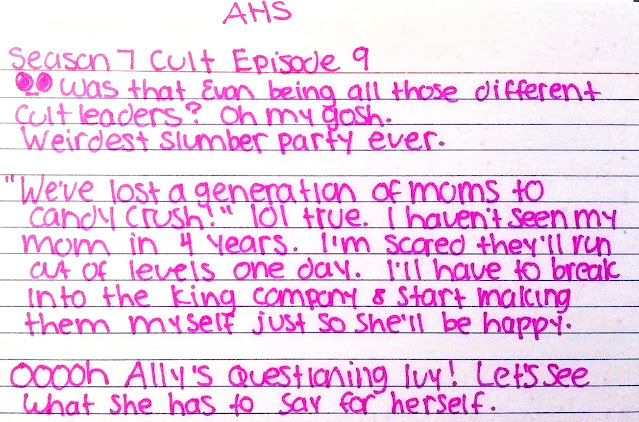 AHS
Season 7 Cult Episode 9
Was that Evan being all those different
cult leaders? Oh my gosh.
Weirdest slumber party ever.
"We've lost a generation of moms to
candy crush!" lol true. I haven't seen my
mom in 4 years. I'm scared they'll run
out of levels one day. I'll have to break
into the King company & start making
them myself just so she'll be happy.
OOOOh Ally's questioning Ivy! Let's see
what she has to say for herself.